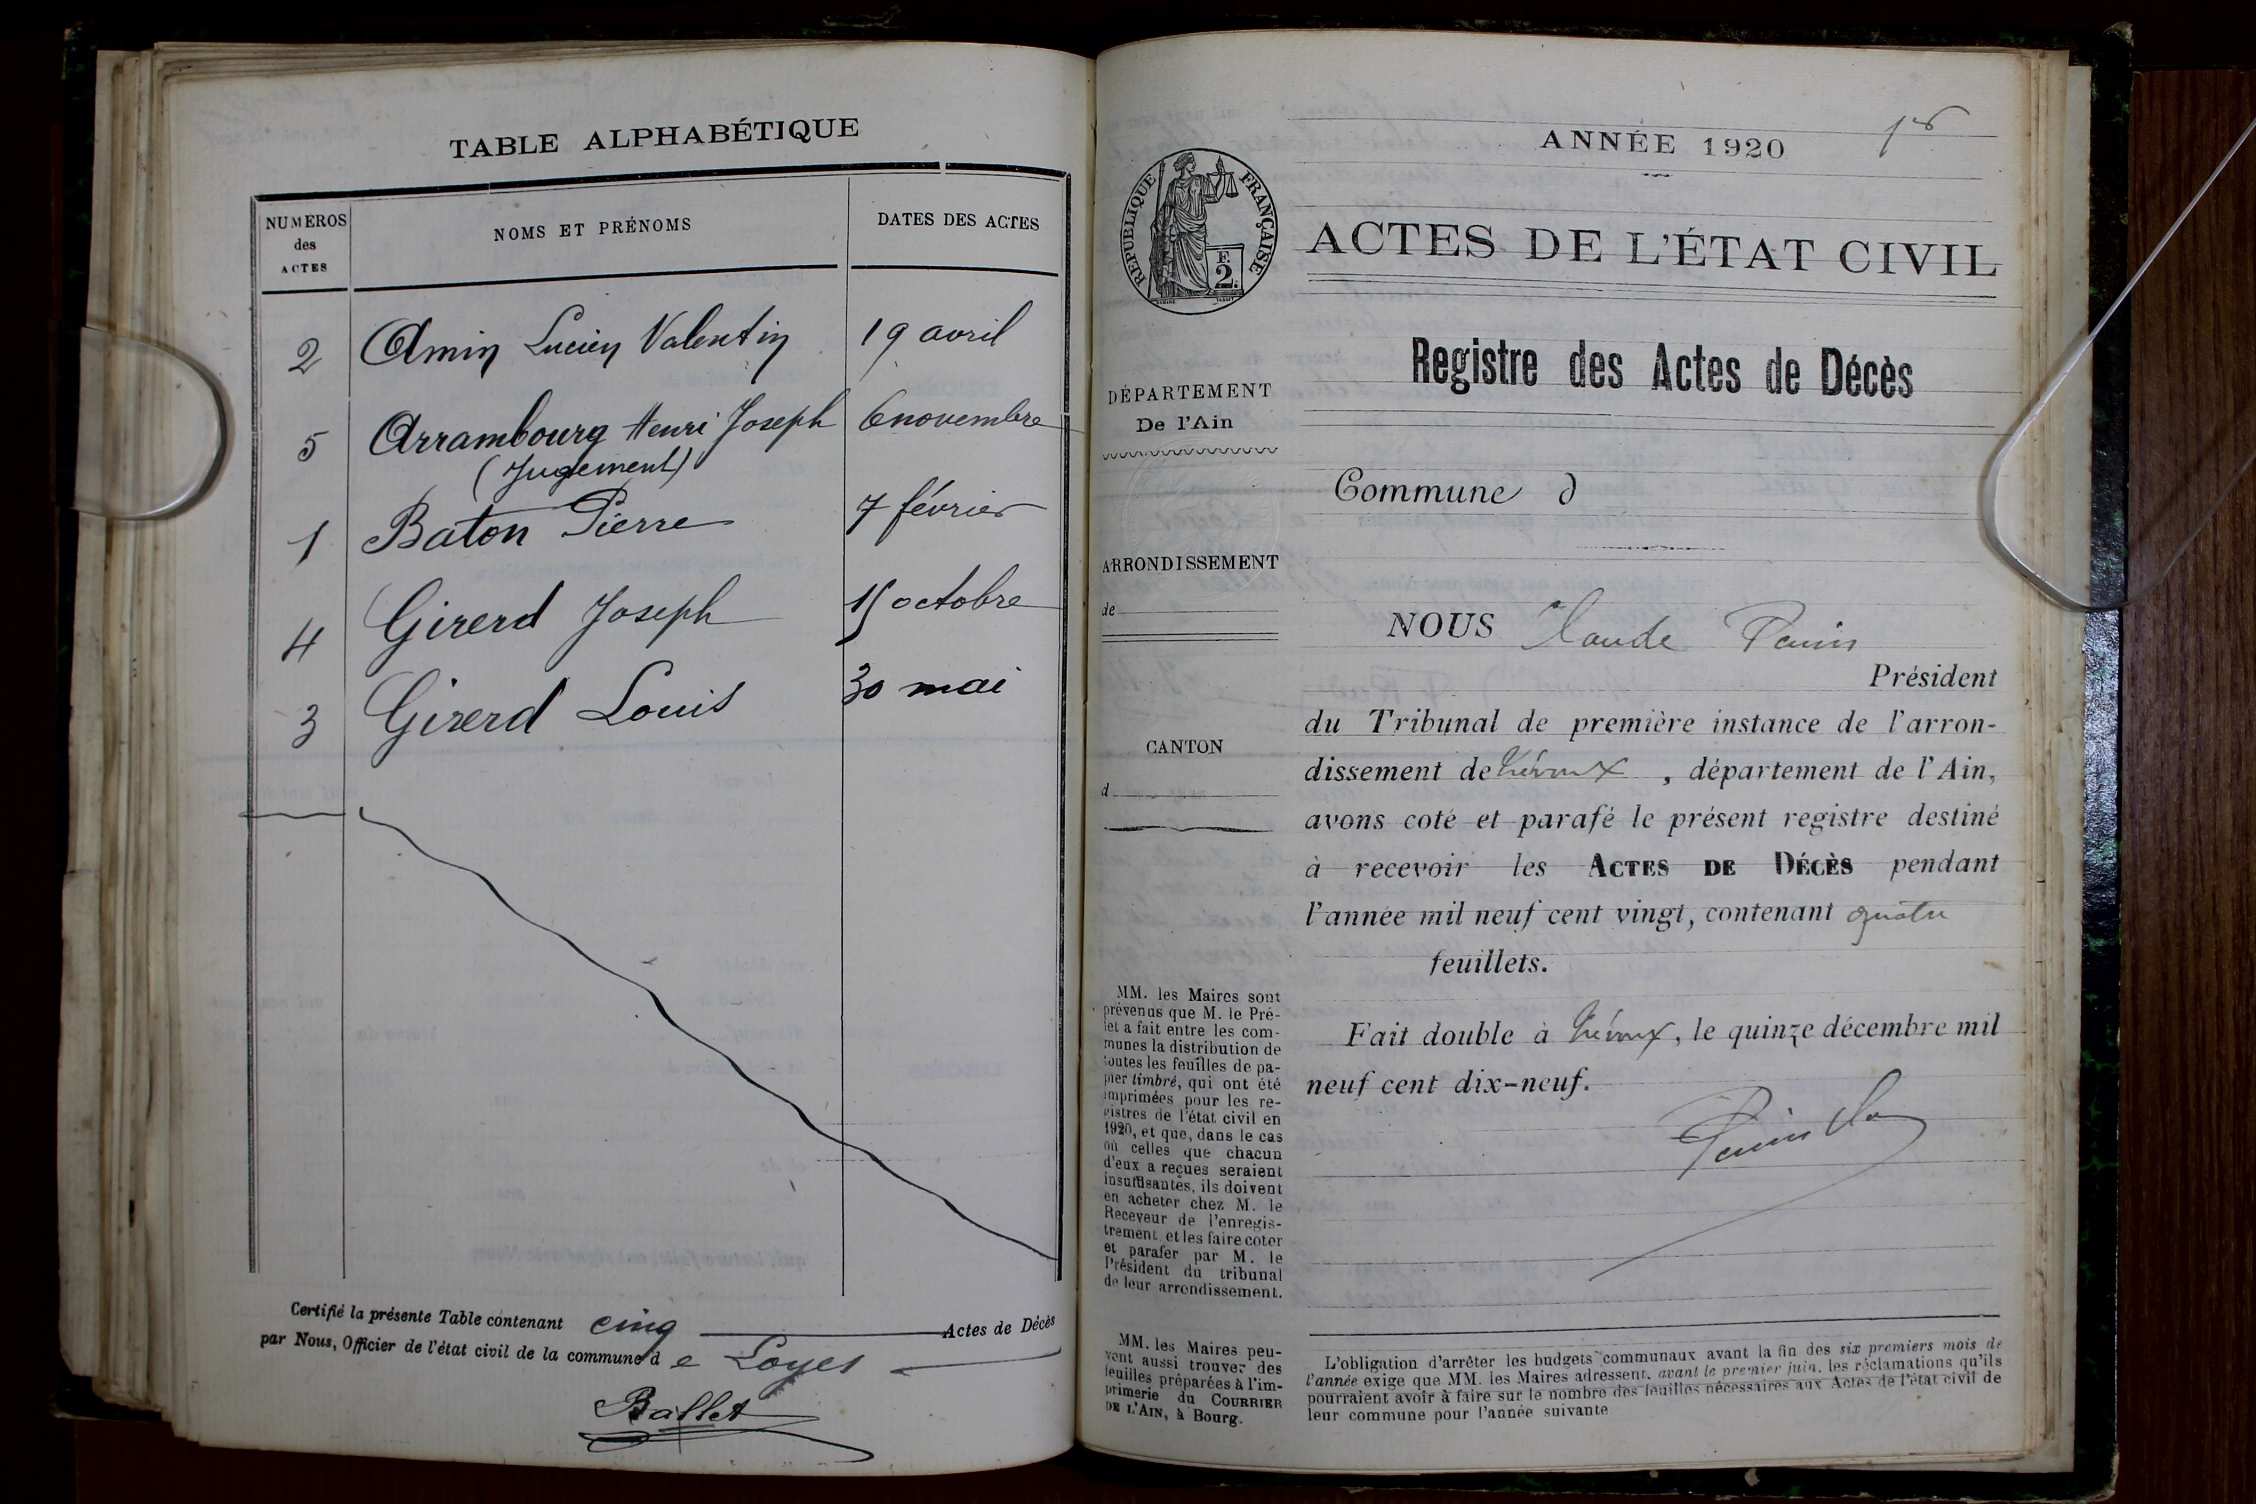 TABLE ALPHABÉTIQUE
NUMEROS des ACTES
NOMS ET PRÉNOMS
DATES DES ACTES
2 Amin Lucien Valentin 19 avril
5 Arrambourg Henri Joseph 6 novembre
(Jugement)
1 Baton Pierre 7 février
4 Girerd Joseph 15 octobre
3 Girerd Louis 30 mai
Certifié la présente Table contenant cinq Actes de Décès
par Nous, Officier de l'état civil de la commune d e Loyes
Ballet
1er
ANNÉE 1920
RÉPUBLIQUE FRANÇAISE
F.
2.
ACTES DE L'ÉTAT CIVIL
Registre des Actes de Décès
DÉPARTEMENT
De l'Ain
Commune d
ARRONDISSEMENT
de
CANTON
d
NOUS Claude
Président
du Tribunal de première instance de l'arron-
dissement de Trévoux, département de l'Ain,
avons coté et parafé le présent registre destiné
à recevoir les ACTES DE DÉCÈS pendant
l'année mil neuf cent vingt, contenant quatre
feuillets.
Fait double à Trévoux, le quinze décembre mil
neuf cent dix-neuf.
MM. les Maires sont
prévenus que M. le Pré-
fet a fait entre les com-
munes la distribution de
toutes les feuilles de pa-
pier timbré, qui ont été
imprimées pour les re-
gistres de l'état civil en
1920, et que, dans le cas
où celles que chacun
d'eux a reçues seraient
insuffisantes, ils doivent
en acheter chez M. le
Receveur de l'enregis-
trement et les faire coter
et parafer par M. le
Président du tribunal
de leur arrondissement.
MM. les Maires peu-
vent aussi trouver des
feuilles préparées à l'im-
primerie du COURRIER
DE L'AIN, à Bourg.
L'obligation d'arrêter les budgets communaux avant la fin des six premiers mois de
l'année exige que MM. les Maires adressent, avant le premier juin, les réclamations qu'ils
pourraient avoir à faire sur le nombre des feuilles nécessaires aux Actes de l'état civil de
leur commune pour l'année suivante